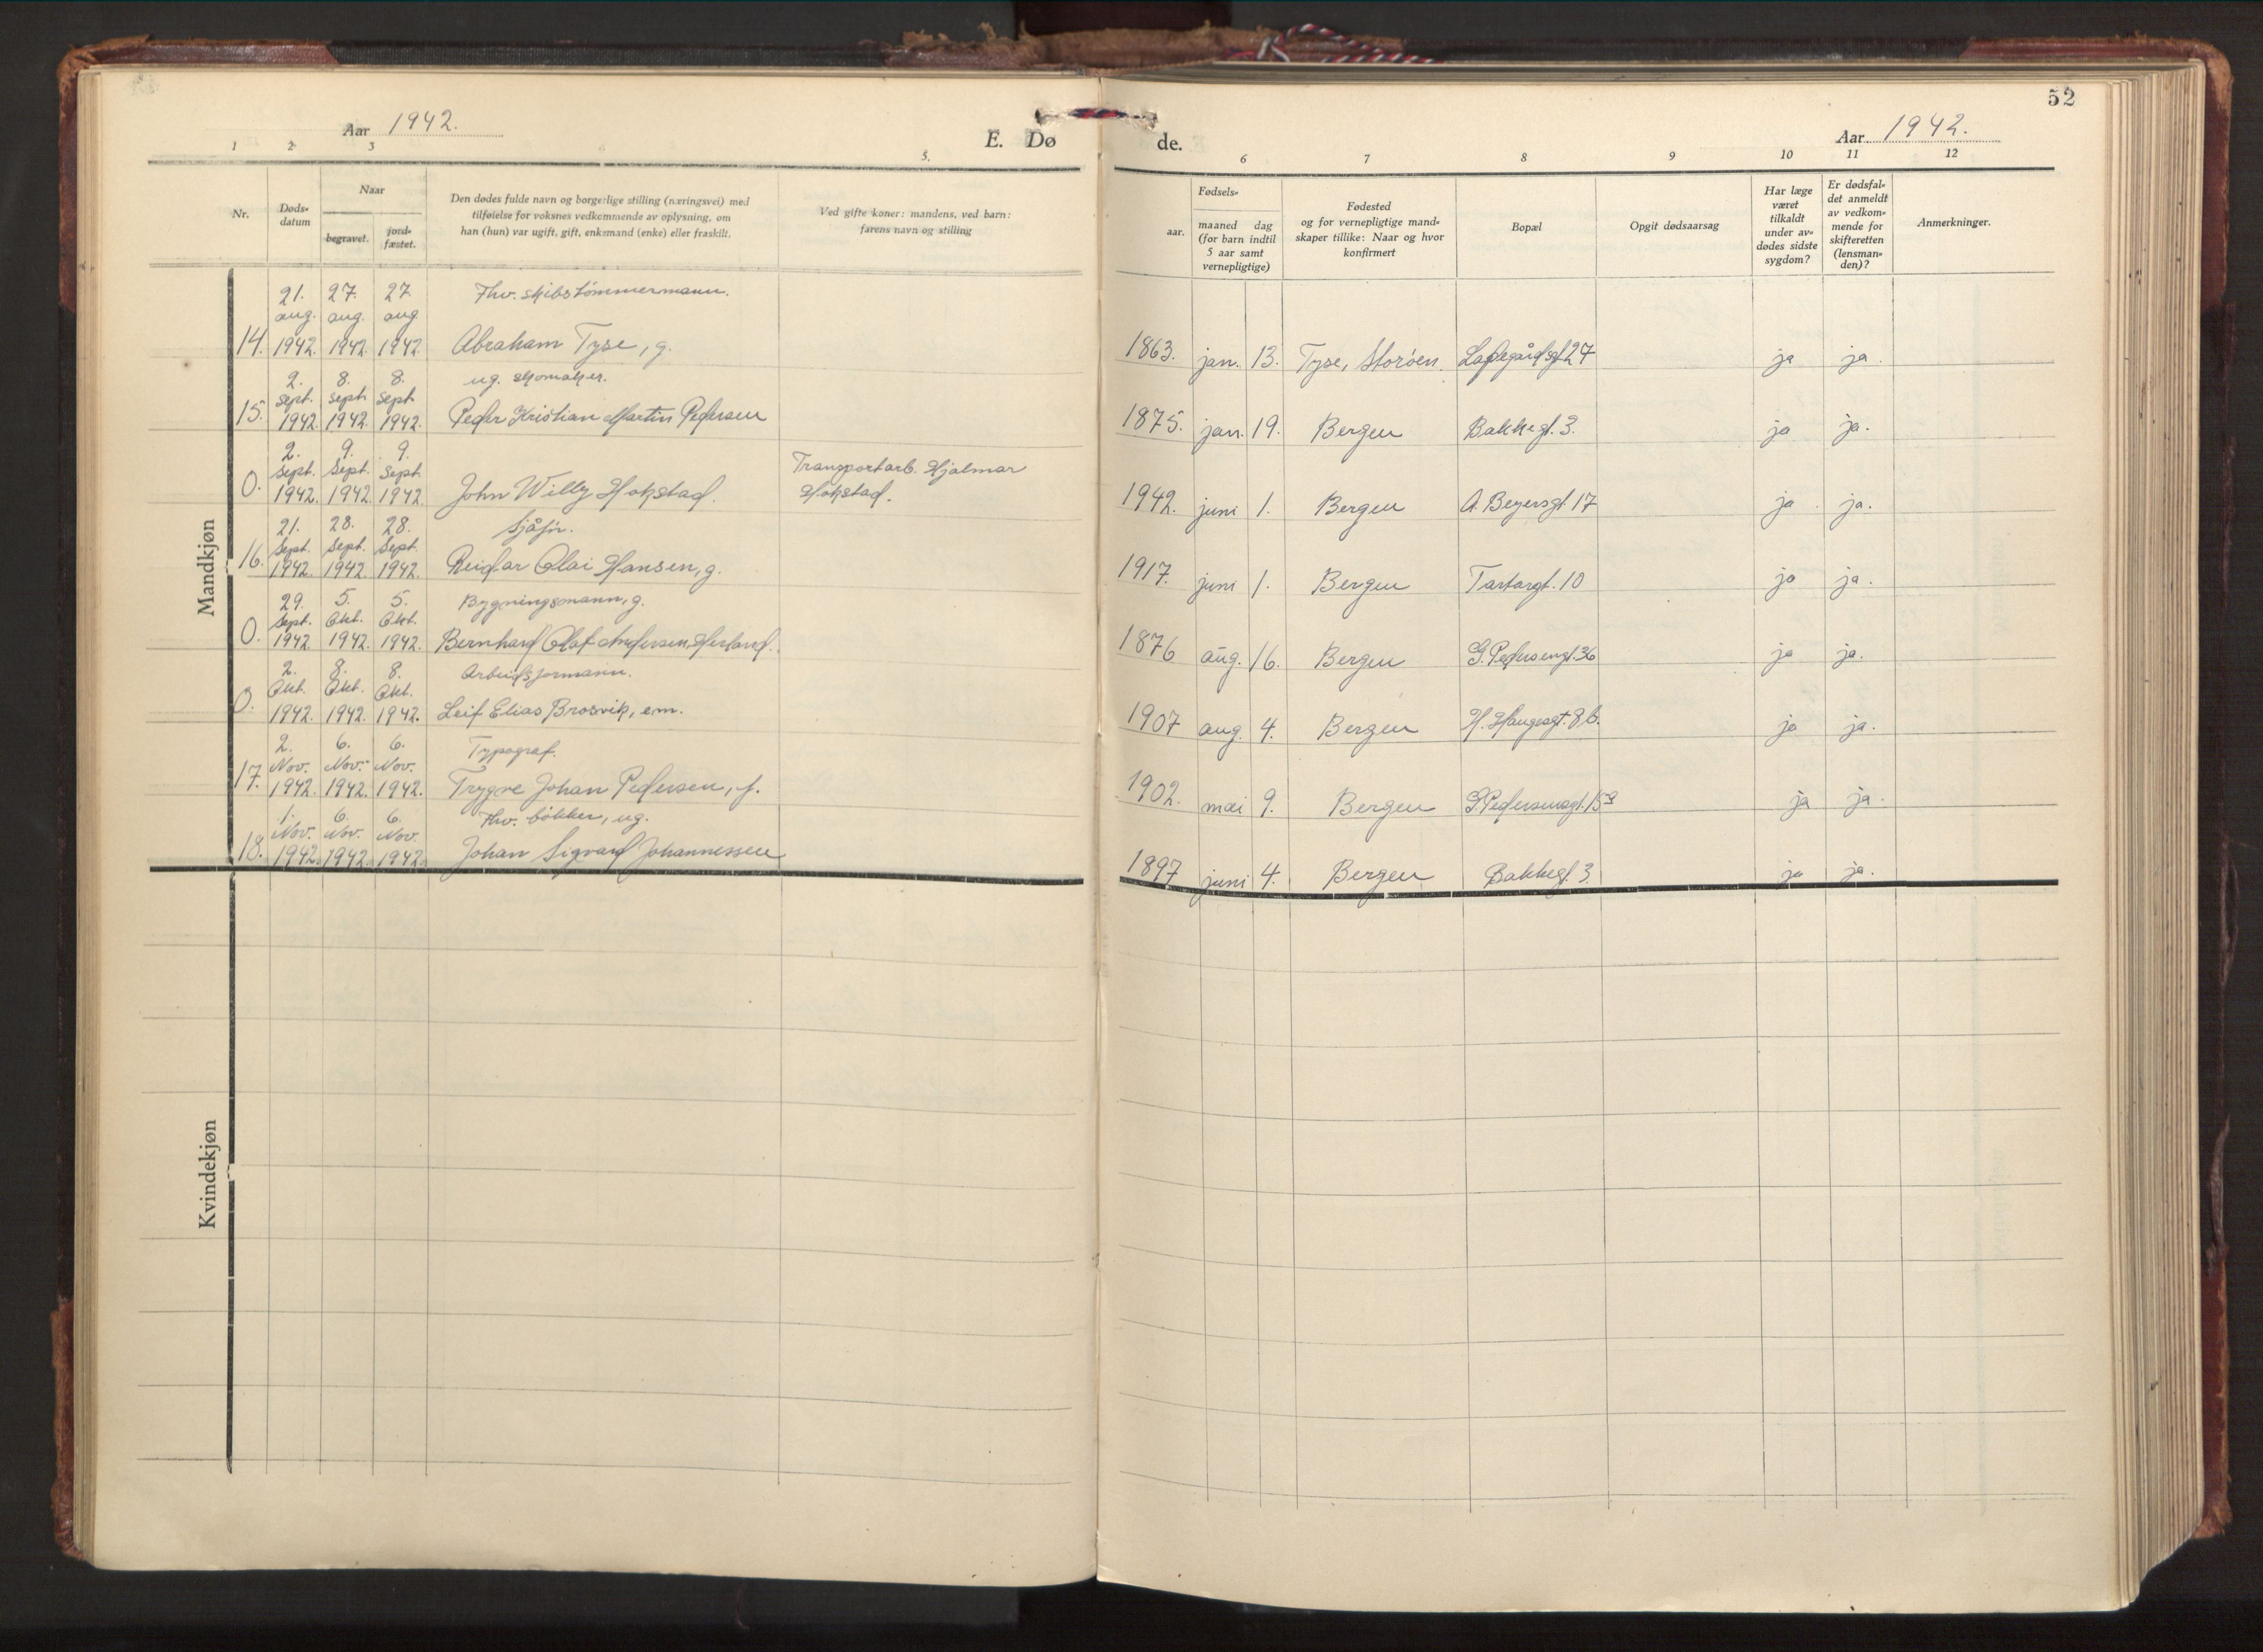 52
Aar 1942.
E. Dø
de.
Aar 1942.
1 2 3 5.
6 7 8 9 10 11 12
Nr.
Døds-
datum
Naar
begravet.
jord-
fæstet.
Den dødes fulde navn og borgerlige stilling (næringsvei) med
tilføielse for voksnes vedkommende av oplysning, om
han (hun) var ugift, gift, enkemand (enke) eller fraskilt.
Ved gifte koner: mandens, ved barn:
farens navn og stilling
Fødsels-
aar.
maaned dag
(for barn indtil
5 aar samt
vernepligtige)
Fødested
og for vernepligtige mand-
skaper tillike: Naar og hvor
konfirmert
Bopæl
Opgit dødsaarsag
Har læge
været
tilkaldt
under av-
dødes sidste
sygdom?
Er dødsfal-
det anmeldt
av vedkom-
mende for
skifteretten
(lensman-
den)?
Anmerkninger.
Mandkjøn
21. 27. 27. Fhv. skibstømmermann.
aug. aug. aug.
14. 1942. 1942. 1942. Abraham Tyse, g. 1863. jan. 13. Tyse, Storöen. Ladegårdsgt 27 ja ja.
2. 8. 8. ug. skomaker.
sept. sept. sept.
15. 1942. 1942. 1942. Peder Kristian Martin Pedersen 1875. jan. 19. Bergen Bakkegt. 3. ja ja.
2. 9. 9. Transportarb. Hjalmar
Sept. Sept. Sept.
0. 1942. 1942. 1942. John Willy Hokstad. Hokstad. 1942. juni 1. Bergen A. Beyersgt. 17 ja ja.
21. 28. 28. Sjåfør.
Sept. Sept. Sept.
16. 1942. 1942. 1942. Reidar Olai Hansen, g. 1917. juni 1. Bergen Tartargt. 10 ja ja.
29. 5. 5. Bygningsmann, g.
Sept. Okt. Okt.
0. 1942. 1942. 1942. Bernhard Olaf Andersen Herland. 1876 aug. 16. Bergen G. Pedersengt. 36 ja ja.
2. 8. 8. Arbeidsformann.
Okt. Okt. Okt.
0. 1942. 1942. 1942. Leif Elias Brosvik, em. 1907 aug. 4. Bergen H. Haugesgt. 8 b. ja ja.
2. 6. 6. Typograf.
Nov. Nov. Nov.
17. 1942. 1942. 1942. Trygve Johan Pedersen, f. 1902. mai 9. Bergen G. Pedersensgt. 15 a ja ja.
1. 6. 6. Fhv. bökker, ug.
Nov. Nov. Nov.
18. 1942. 1942. 1942. Johan Sigvard Johannessen 1897 juni 4. Bergen Bakkegt. 3. ja ja.
Kvindekjøn